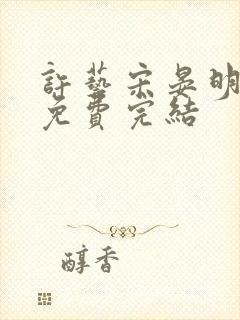 許藝宋晏明
免費完結
醇香